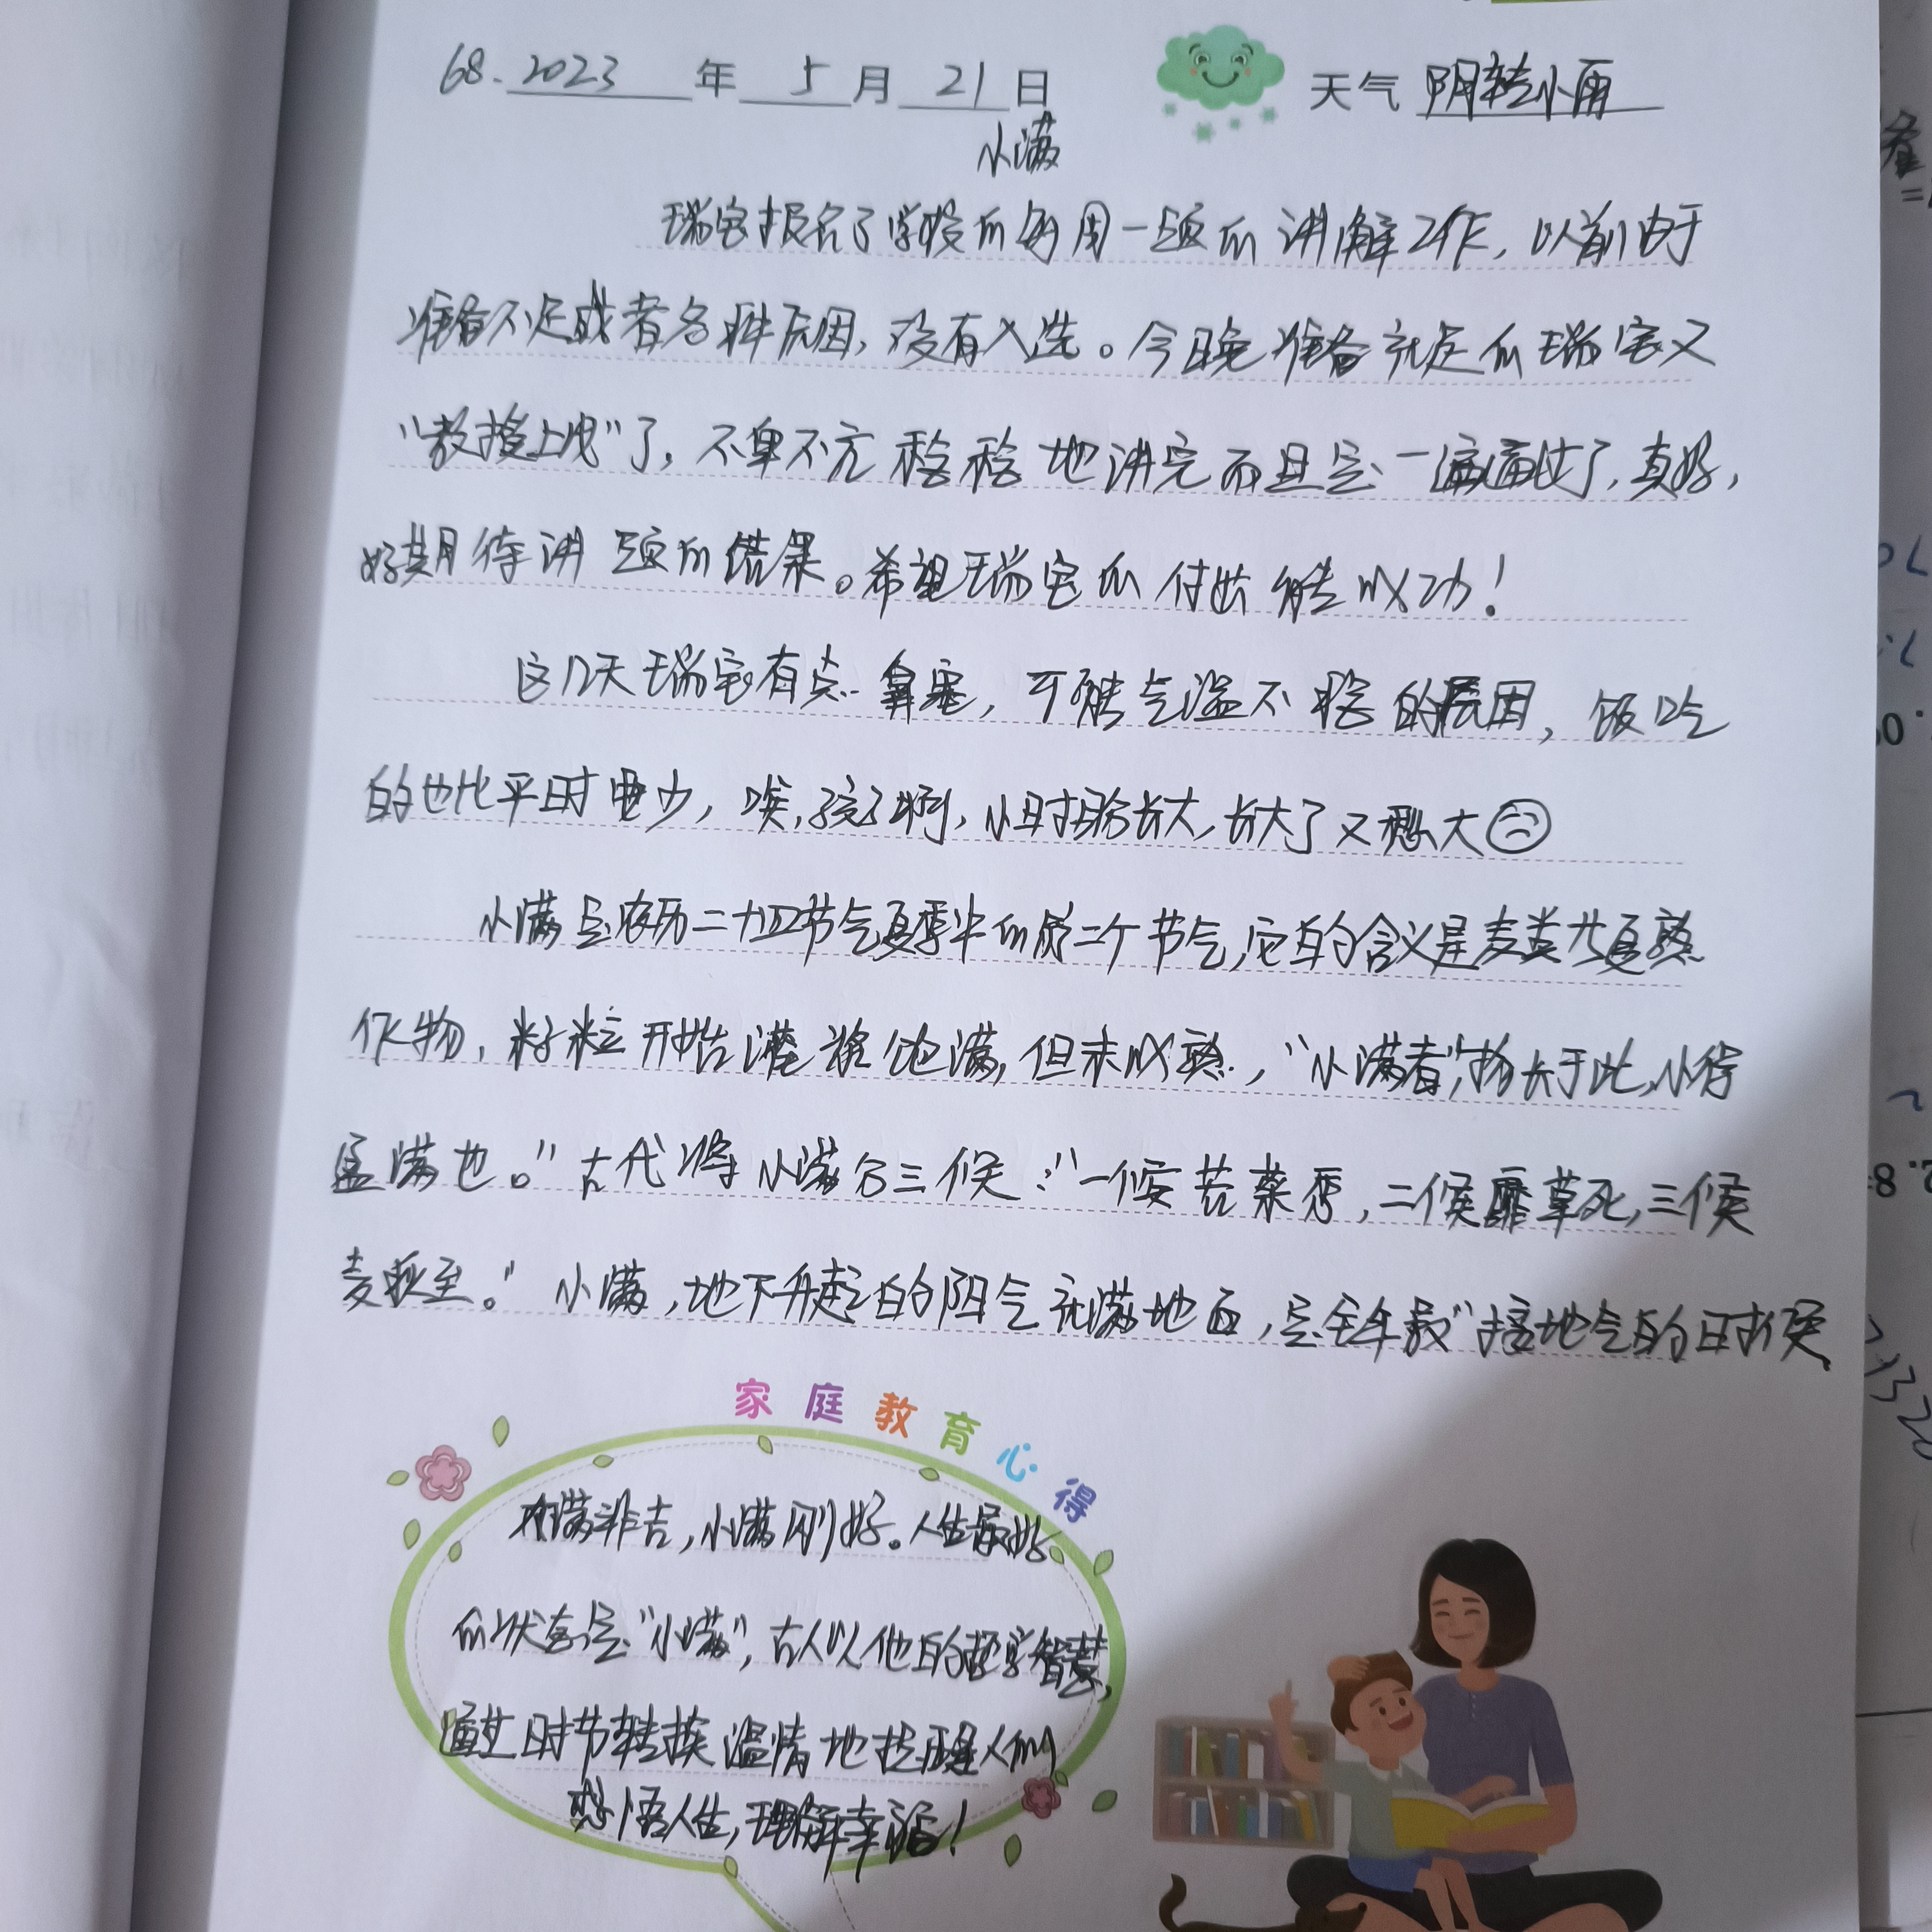 68. 2023年5月21日 天气 阴转小雨
小满
瑞宝报名了学校的每周一题的讲解工作，以前由于
准备不足或者各种原因，没有入选。今晚准备就足的瑞宝又
“教授上身”了，不卑不亢稳稳地讲完而且是一遍通过了，真好，
好期待讲题的结果。希望瑞宝的付出能成功！
这几天瑞宝有点鼻塞，可能气温不稳的原因，饭吃
的也比平时要少，唉，孩子啊，小时盼长大，长大了又愁大
小满是农历二十四节气夏季中的第二个节气，它的含义是麦类大夏熟
作物，籽粒开始灌浆饱满，但未成熟，“小满者”，物长于此，小得
盈满也。”古代将小满分三候：“一候苦菜秀，二候靡草死，三候
麦秋至。”小满，地下升起的阳气充满地面，是全年最“接地气的时候
家庭教育心得
大满非吉，小满刚好。人生最好
的状态是“小满”，古人以他的哲学智慧，
通过时节转换温情地提醒人们
感悟人生，理解幸福！